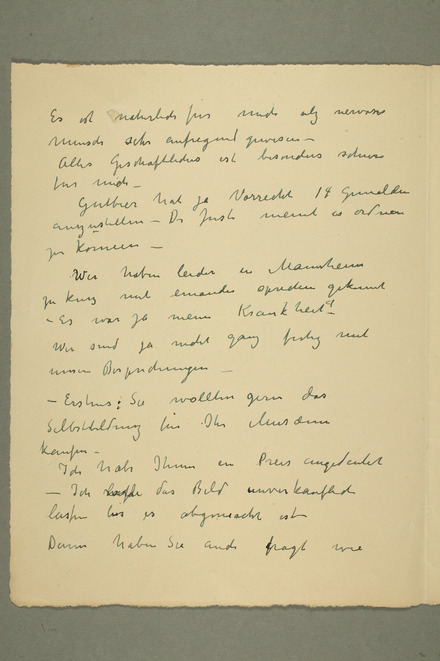 Es ist natürlich für mich als nervöser
Mensch sehr aufregend gewesen –
Alles Geschäftliches ist besonders schwer
für mich –
Gutbier hat ja Vorrecht 14 Gemälden
auszustellen – Dr. Justi meint es ordnen
zu können –
Wir haben leider in Mannheim
zu kurz mit einander sprechen gekonnt
– Es war ja meine Krankheit
Wir sind ja nicht ganz fertig mit
unsern Besprechungen –
– Erstens: Sie wollten gern das
Selbstbildniss für Ihr Museum
kaufen –
Ich habe Ihnen ein Preis angedeutet
– Ich das Bild unverkauflich
lassen bis es abgemacht ist
Dann haben Sie auch fragt wie